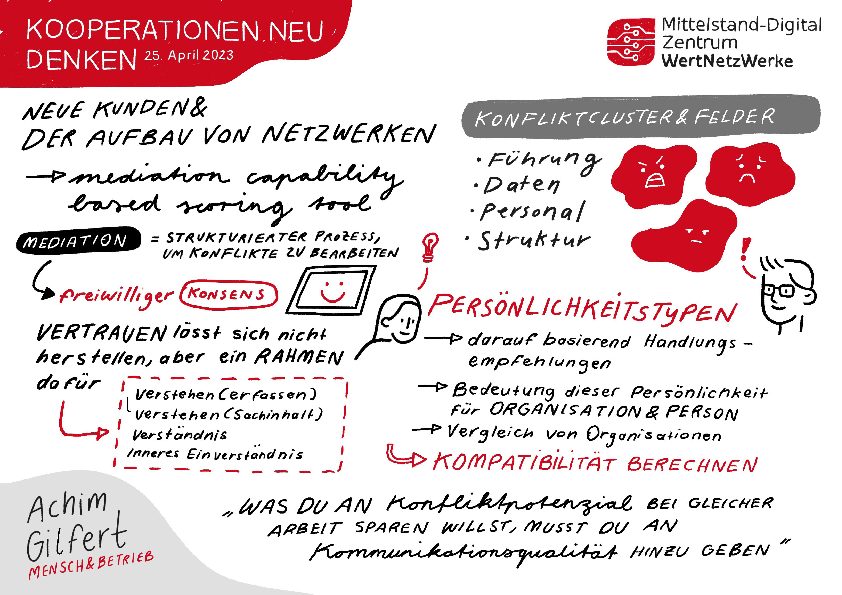 KOOPERATIONEN NEU
DENKEN 25. April 2023
Mittelstand-Digital
Zentrum
WertNetzWerke
NEUE KUNDEN &
DER AUFBAU VON NETZWERKEN
mediation capability
based scoring tool
MEDIATION = STRUKTURIERTER PROZESS,
UM KONFLIKTE ZU BEARBEITEN
freiwilliger KONSENS
VERTRAUEN lässt sich nicht
herstellen, aber ein RAHMEN
dafür
Verstehen (erfassen)
Verstehen (Sachinhalt)
Verständnis
Inneres Einverständnis
KONFLIKTCLUSTER & FELDER
· Führung
· Daten
· Personal
· Struktur
!
PERSÖNLICHKEITSTYPEN
darauf basierend Handlungs-
empfehlungen
Bedeutung dieser Persönlichkeit
für ORGANISATION & PERSON
Vergleich von Organisationen
KOMPATIBILITÄT BERECHNEN
Achim
Gilfert
MENSCH & BETRIEB
„WAS DU AN Konfliktpotenzial BEI GLEICHER
ARBEIT SPAREN WILLST, MUSST DU AN
Kommunikationsqualität HINZU GEBEN"